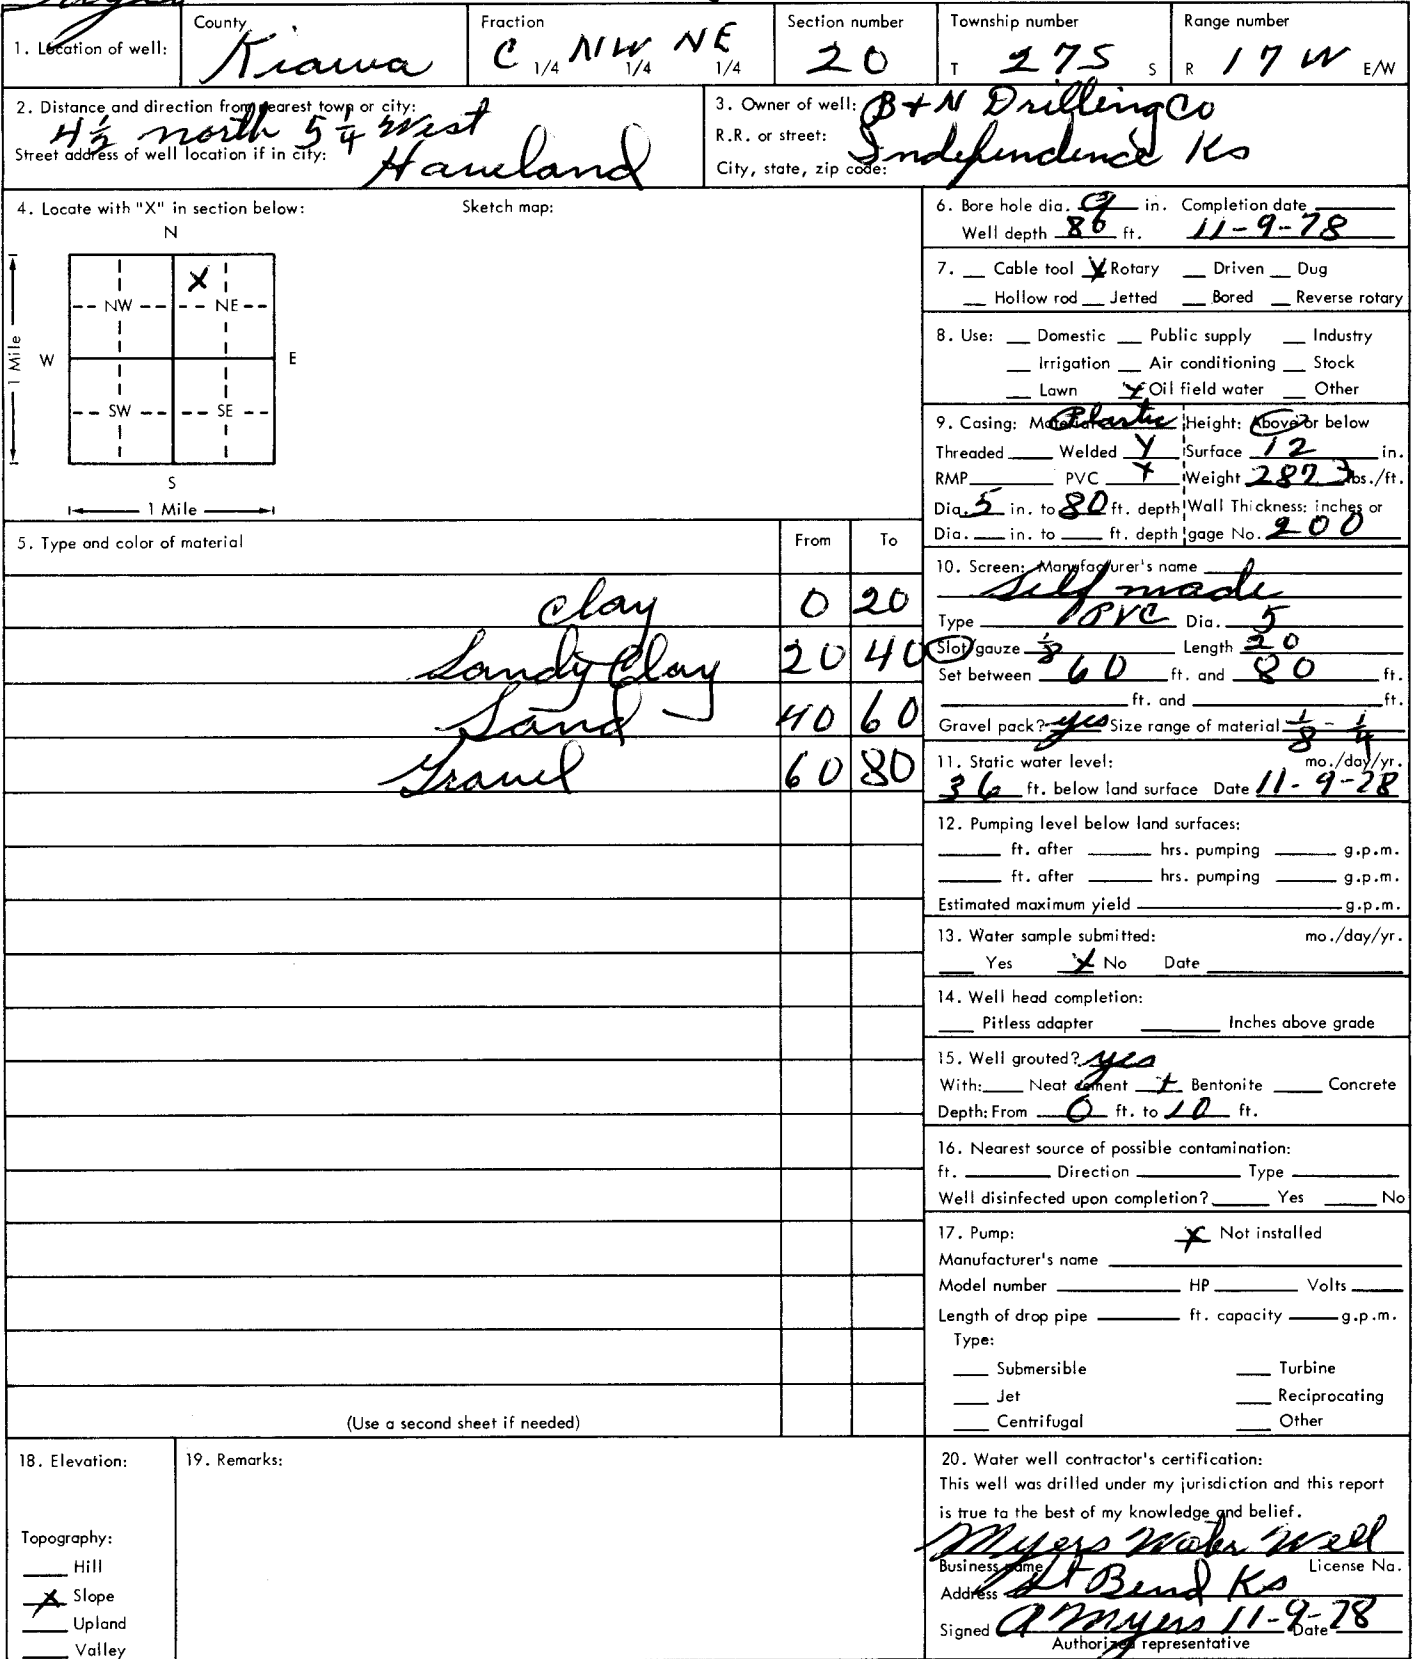 1. Location of well:
County
Kiawa
Fraction
C 1/4 NW 1/4 NE 1/4
Section number
20
Township number
T 27S S
Range number
R 17 W E/W
2. Distance and direction from nearest town or city:
4½ north 5¼ West
Street address of well location if in city:
Haveland
3. Owner of well: B + N Drilling Co
R.R. or street:
City, state, zip code: Independence Ks
4. Locate with "X" in section below:
Sketch map:
N
X
NW NE
W E
1 Mile
SW SE
S
1 Mile
5. Type and color of material From To
Clay 0 20
Sandy Clay 20 40
Sand 40 60
Gravel 60 80
(Use a second sheet if needed)
6. Bore hole dia. 9 in. Completion date
Well depth 86 ft. 11-9-78
7. __ Cable tool X Rotary __ Driven __ Dug
__ Hollow rod __ Jetted __ Bored __ Reverse rotary
8. Use: __ Domestic __ Public supply __ Industry
__ Irrigation __ Air conditioning __ Stock
__ Lawn X Oil field water __ Other
9. Casing: Material Plastic Height: Above or below
Threaded ____ Welded X Surface 12 in.
RMP ____ PVC X Weight 2873 lbs./ft.
Dia. 5 in. to 80 ft. depth Wall Thickness: inches or
Dia. ___ in. to ___ ft. depth gage No. 200
10. Screen: Manufacturer's name
Self made
Type PVC Dia. 5
Slot/gauze 1/8 Length 20
Set between 60 ft. and 80 ft.
____ ft. and ____ ft.
Gravel pack? yes Size range of material 1/8 - 1/4
11. Static water level: mo./day/yr.
36 ft. below land surface Date 11-9-78
12. Pumping level below land surfaces:
____ ft. after ____ hrs. pumping ____ g.p.m.
____ ft. after ____ hrs. pumping ____ g.p.m.
Estimated maximum yield ____ g.p.m.
13. Water sample submitted: mo./day/yr.
__ Yes X No Date ____
14. Well head completion:
__ Pitless adapter ____ Inches above grade
15. Well grouted? yes
With: ___ Neat cement + Bentonite ___ Concrete
Depth: From 0 ft. to 10 ft.
16. Nearest source of possible contamination:
ft. ____ Direction ____ Type ____
Well disinfected upon completion? ___ Yes ___ No
17. Pump: X Not installed
Manufacturer's name ____
Model number ____ HP ____ Volts ____
Length of drop pipe ____ ft. capacity ____ g.p.m.
Type:
__ Submersible __ Turbine
__ Jet __ Reciprocating
__ Centrifugal __ Other
18. Elevation:
Topography:
__ Hill
X Slope
__ Upland
__ Valley
19. Remarks:
20. Water well contractor's certification:
This well was drilled under my jurisdiction and this report
is true to the best of my knowledge and belief.
Myers Water Well
Business name License No.
Address Gt Bend Ks
Signed A Myers 11-9-78 Date
Authorized representative